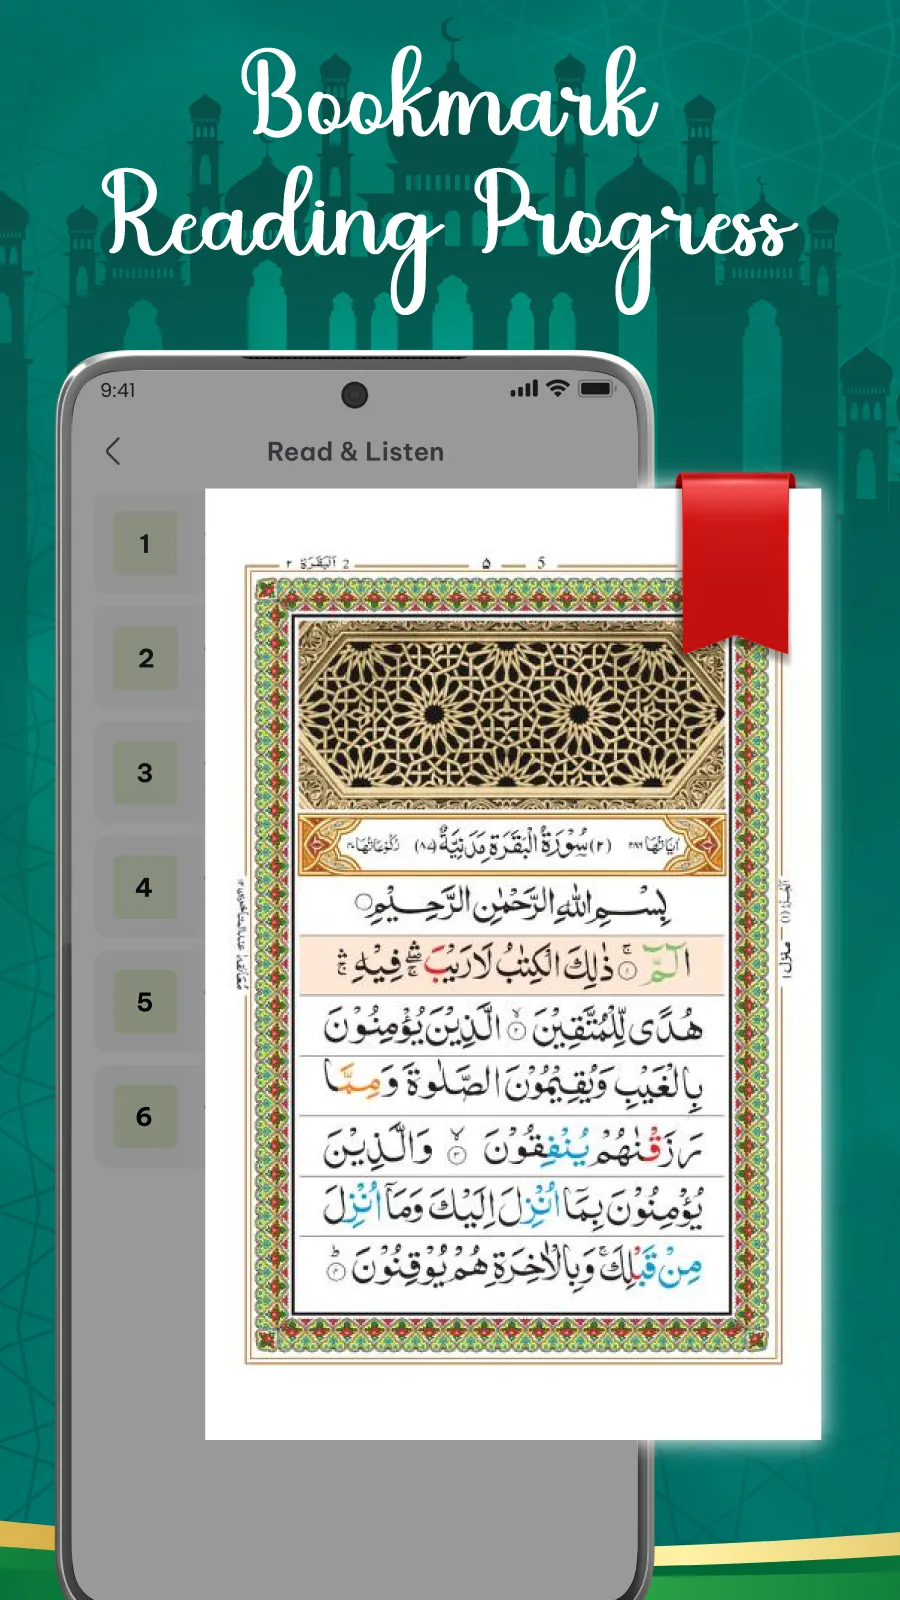 Bookmark
Reading Progress
9:41
Read & Listen
1
2
3
4
5
6
٢ اَلْبَقَرَة 2
۵ — 5
اٰيَاتُهَا ٢٨٦ (٢) سُوْرَةُ الْبَقَرَةِ مَدَنِيَّةٌ (٨٧) رُكُوْعَاتُهَا ٤٠
بِسْمِ اللهِ الرَّحْمٰنِ الرَّحِيْمِ
الٓمّٓ ۚ ١ ذٰلِكَ الْكِتٰبُ لَا رَيْبَ ۛۖ فِيْهِ ۛ
هُدًى لِّلْمُتَّقِيْنَ ۙ ٢ الَّذِيْنَ يُؤْمِنُوْنَ
بِالْغَيْبِ وَيُقِيْمُوْنَ الصَّلٰوةَ وَمِمَّا
رَزَقْنٰهُمْ يُنْفِقُوْنَ ۙ ٣ وَالَّذِيْنَ
يُؤْمِنُوْنَ بِمَآ اُنْزِلَ اِلَيْكَ وَمَآ اُنْزِلَ
مِنْ قَبْلِكَ ۚ وَبِالْاٰخِرَةِ هُمْ يُوْقِنُوْنَ ؕ ٤